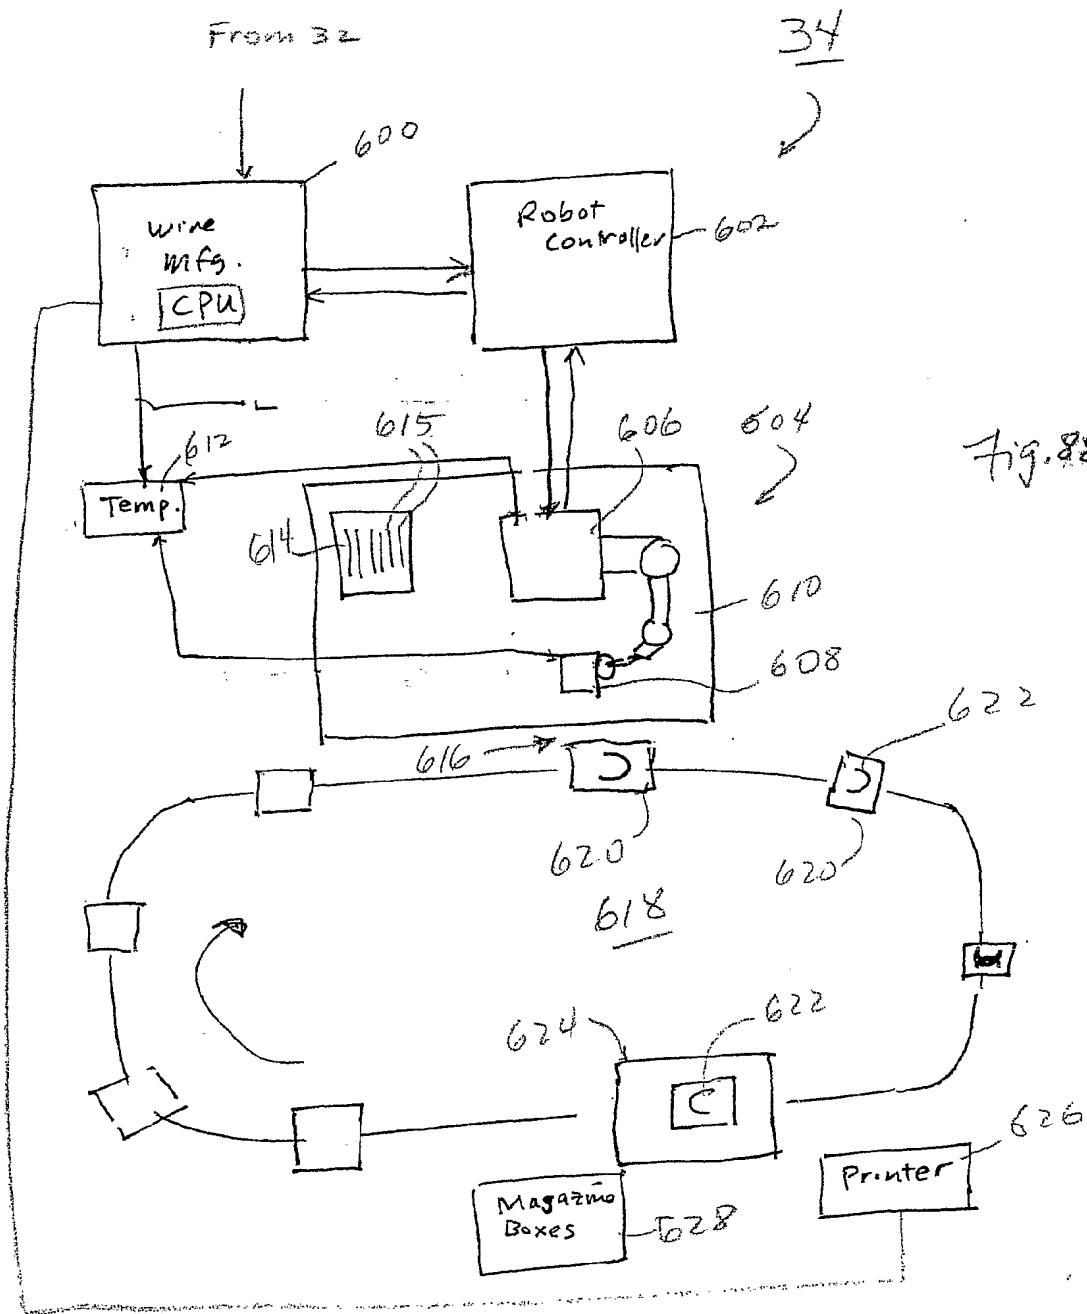 From 32
34
600
Wire
Mfg.
CPU
Robot
Controller
602
L
612
Temp.
615
614
606
604
610
608
616
622
620
620
618
624
622
626
Printer
Magazine
Boxes
628